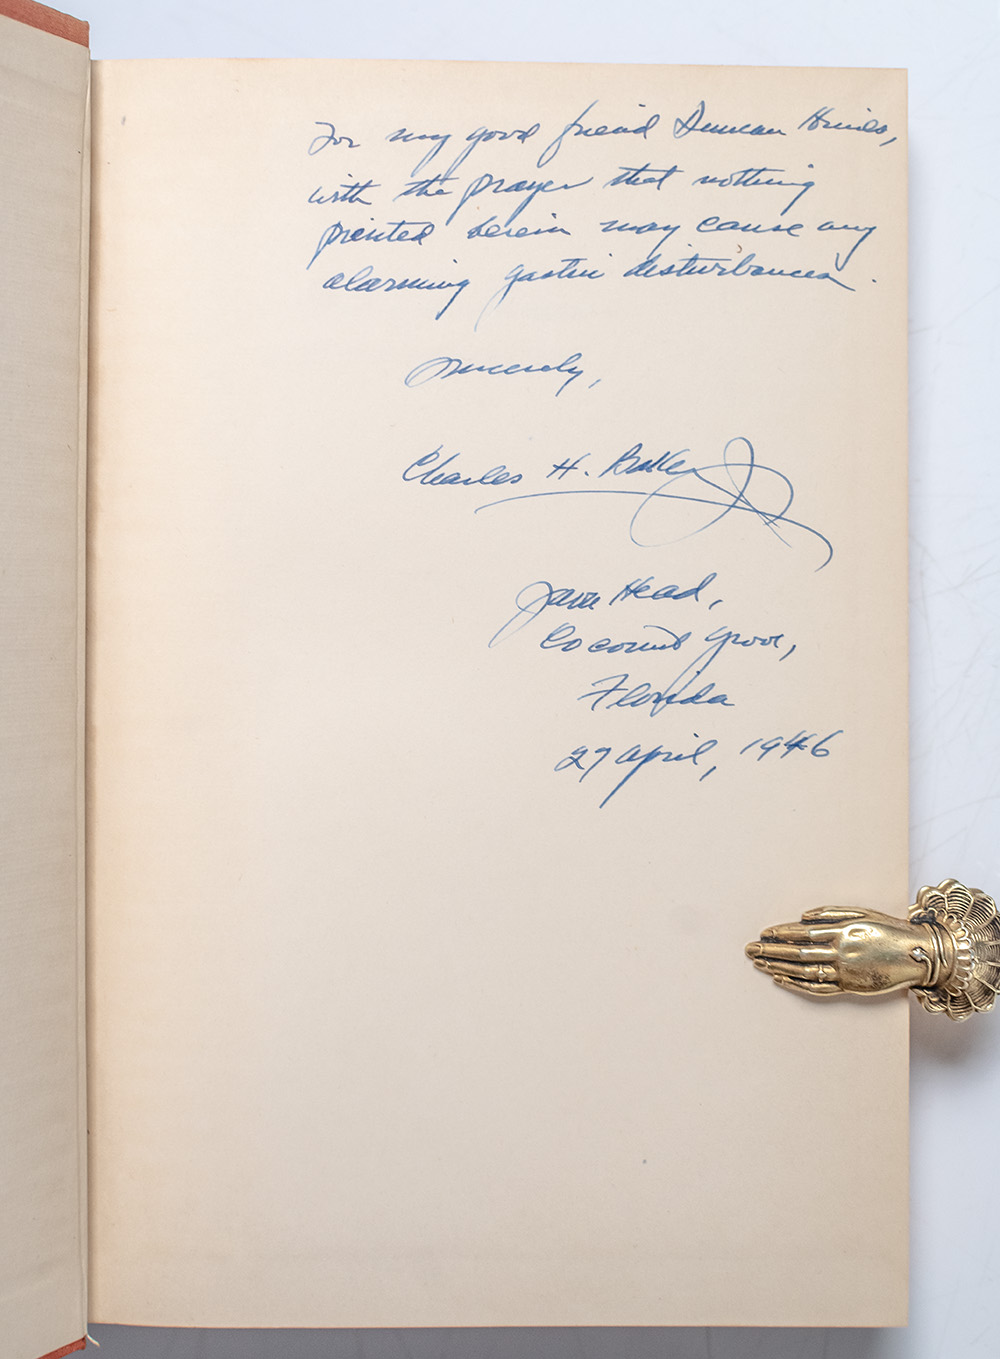 For my good friend Duncan Hines,
with the prayer that nothing
printed herein may cause any
alarming gastric disturbances.
Sincerely,
Charles H. Baker Jr.
Java Head,
Coconut Grove,
Florida
27 April, 1946